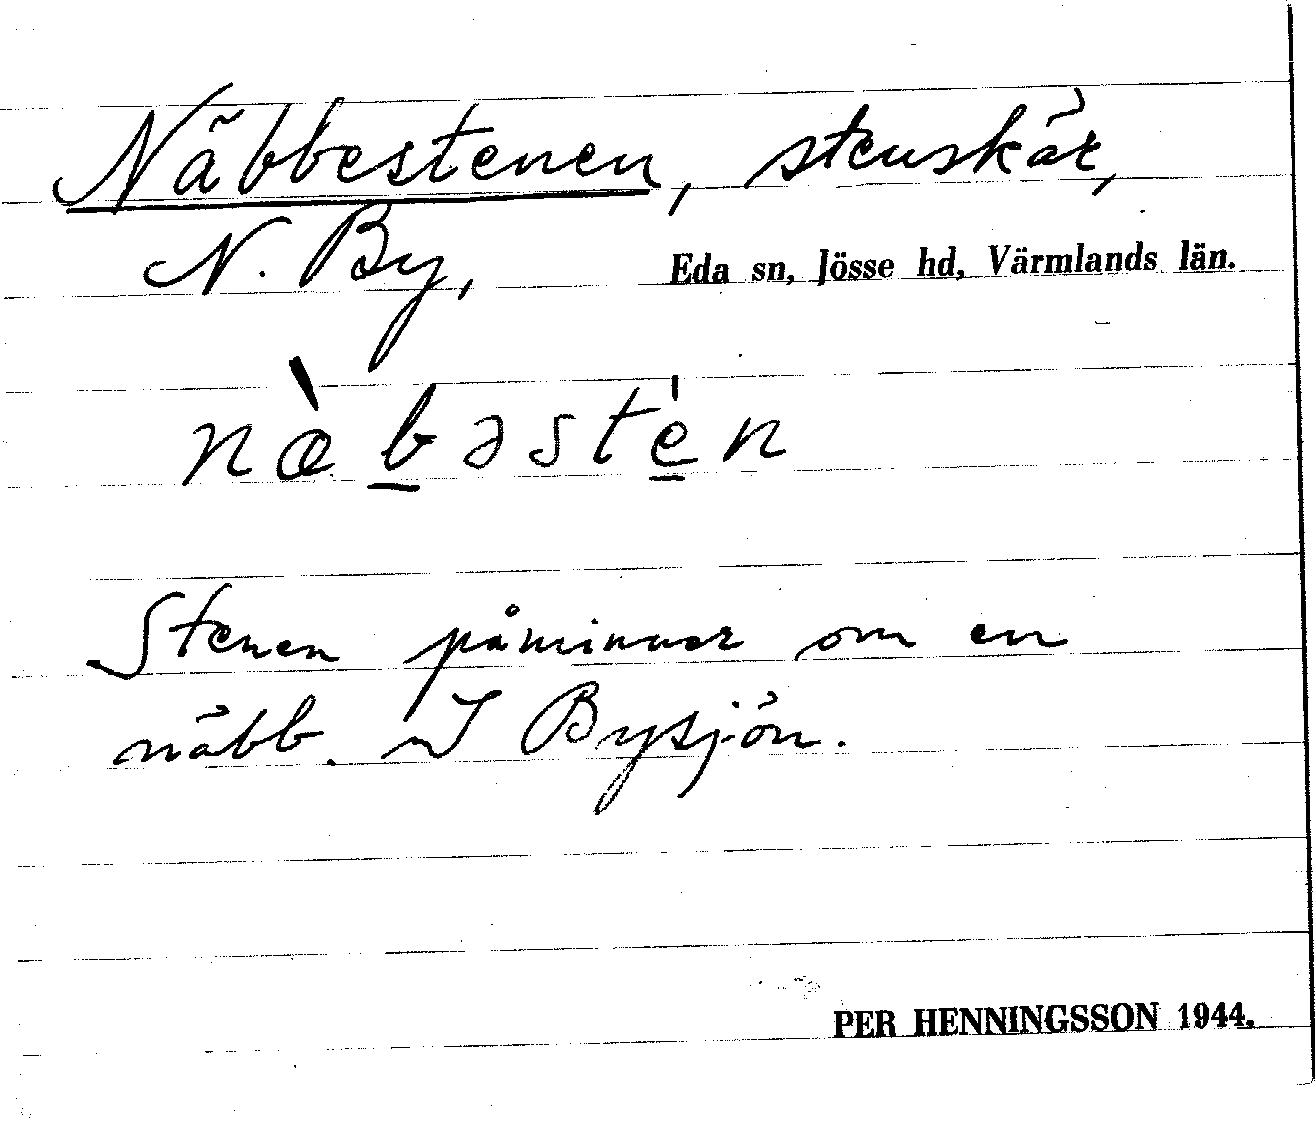 Näbbestenen, stenskär,
N. By, Eda sn, Jösse hd, Värmlands län.
næ̀bəstèn
Stenen påminner om en
näbb. I Bysjön.
PER HENNINGSSON 1944.